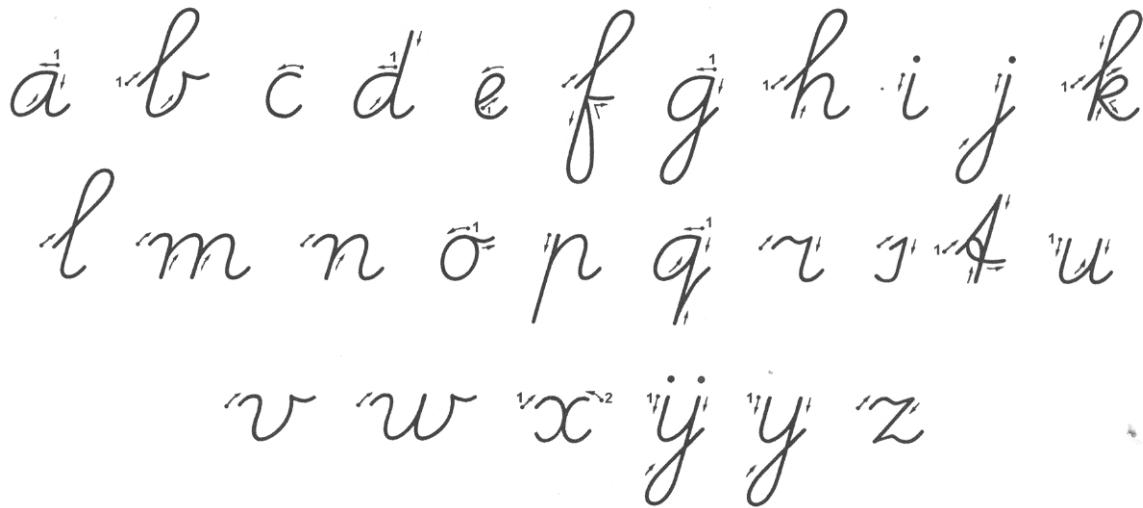 a b c d e f g h i j k
l m n o p q r s t u
v w x ĳ y z